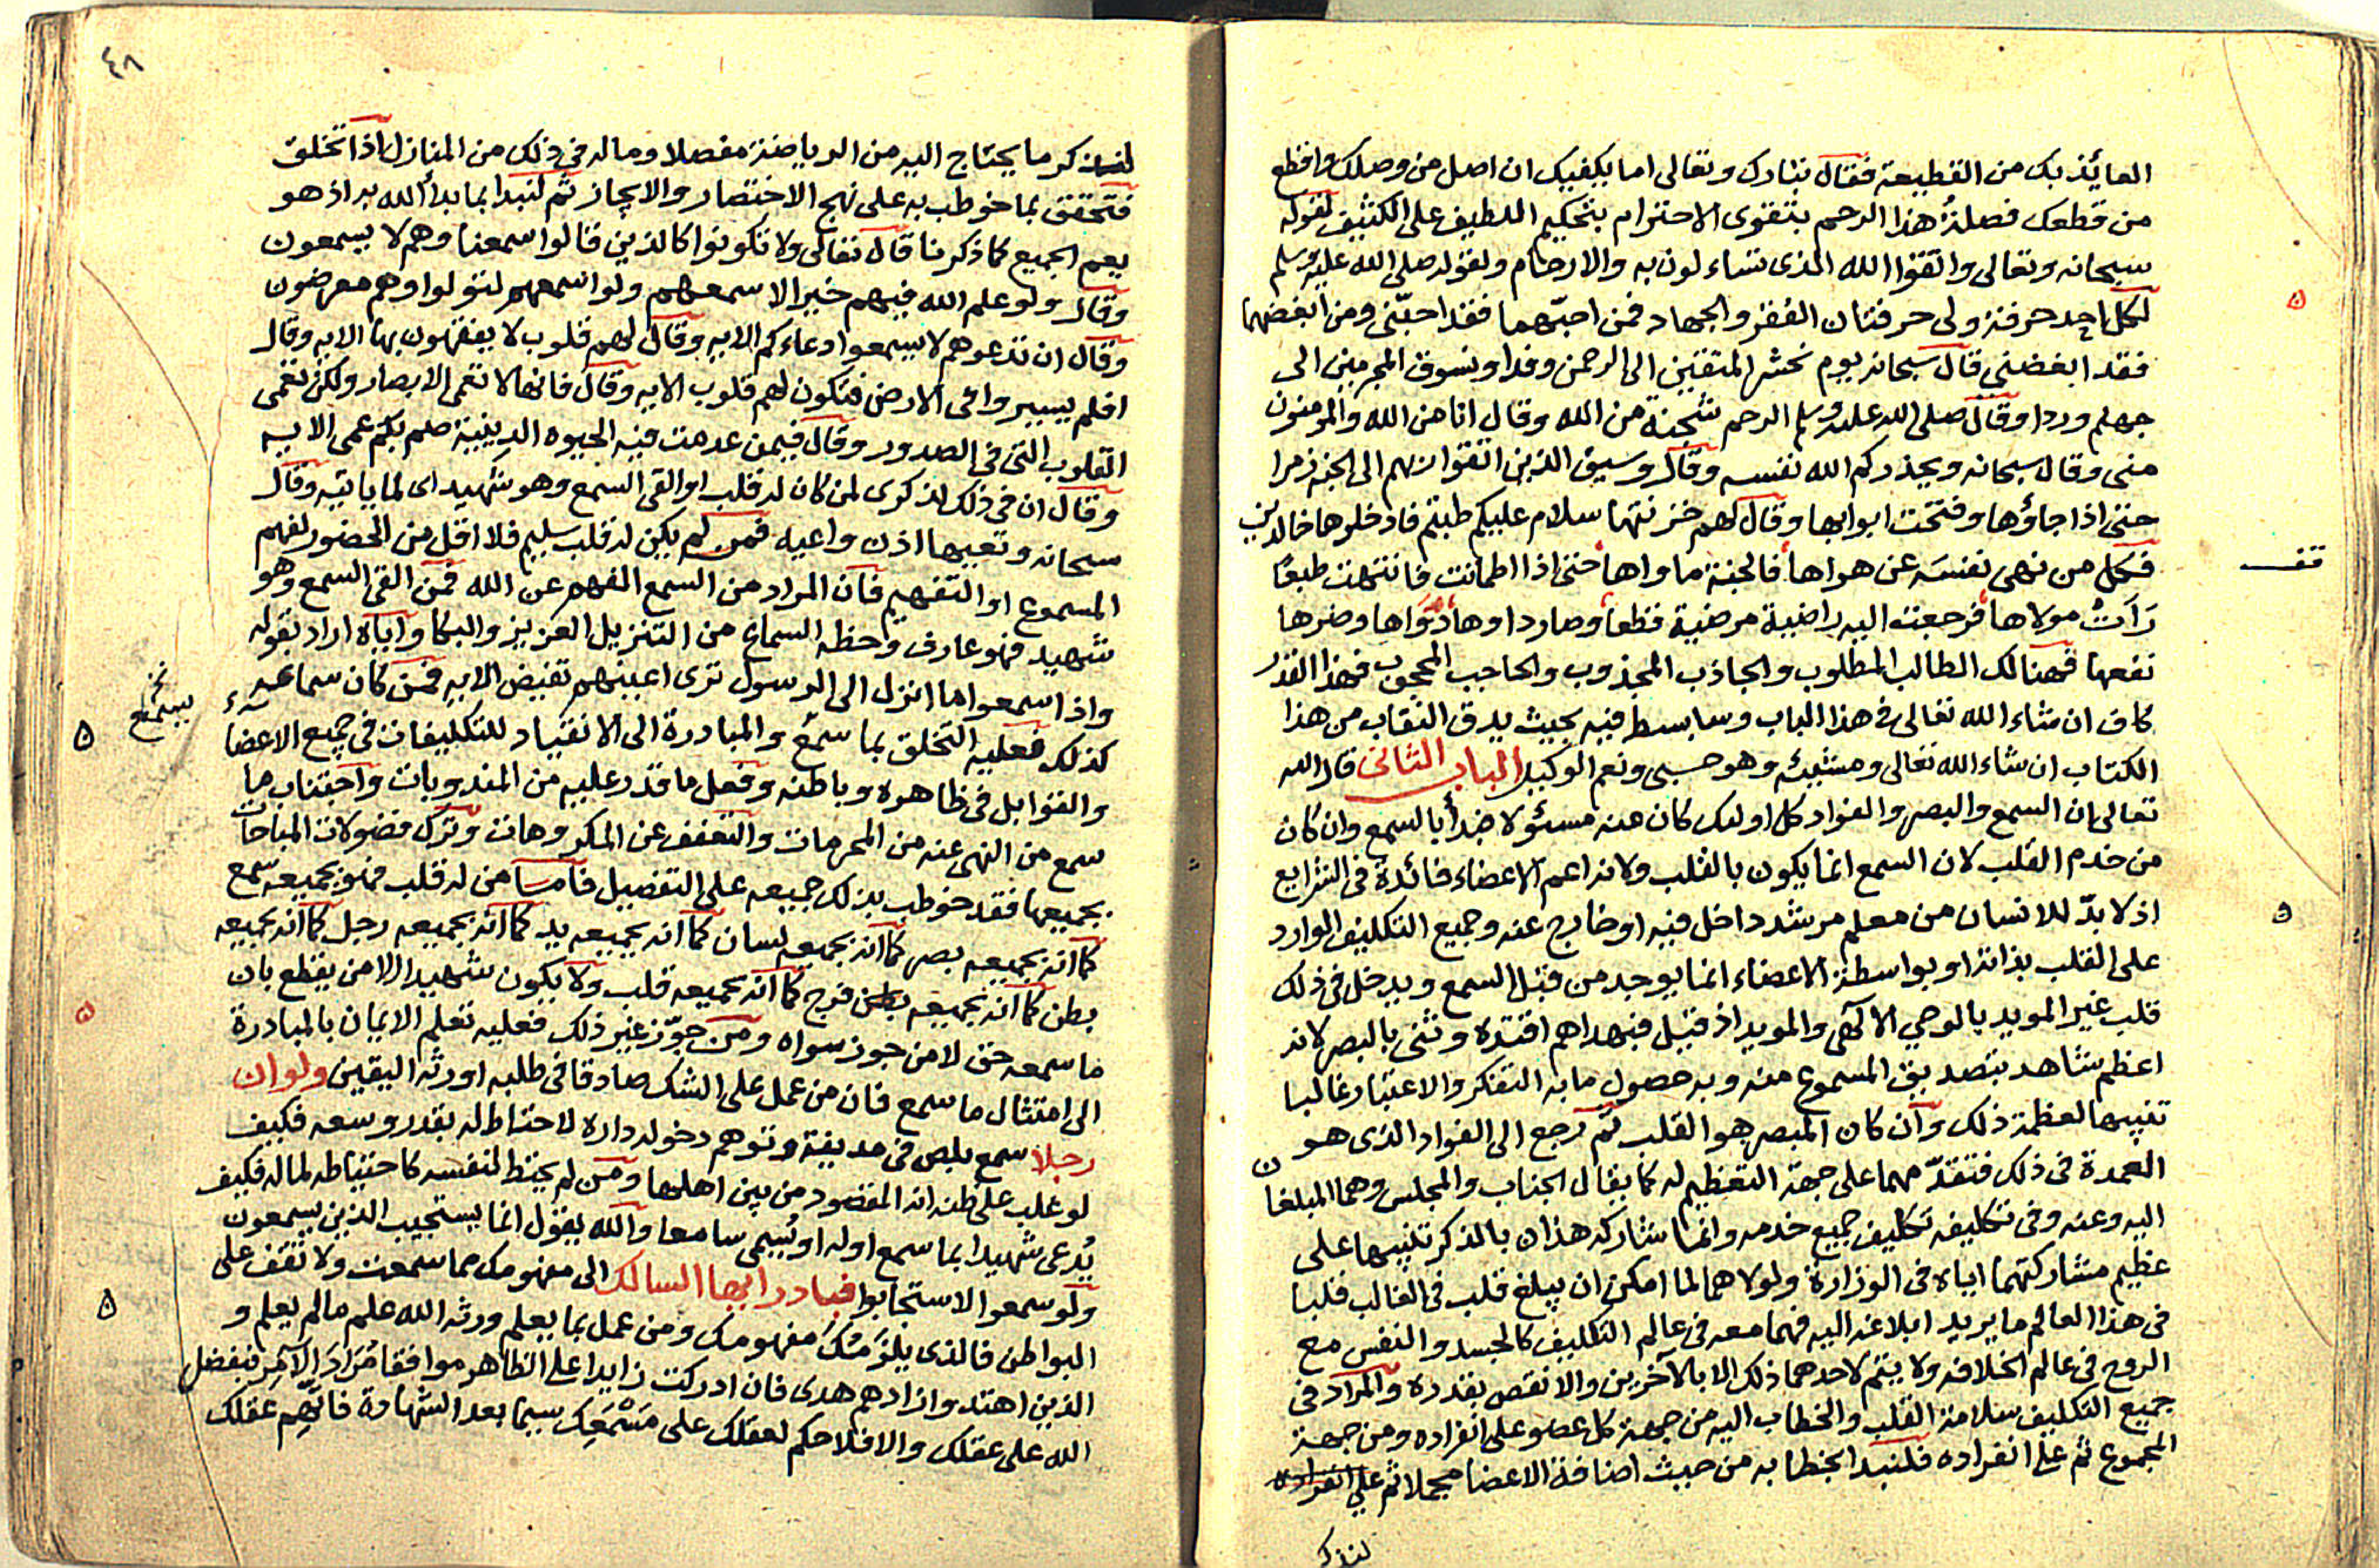 العائذ بك من القطيعة فقال تبارك وتعالى اما يكفيك ان اصل من وصلك واقطع
من قطعك فصلة هذا الرحم بتقوى الاحترام بتحكيم اللطيف على الكثيف لقوله
سبحانه وتعالى واتقوا الله الذى تساءلون به والارحام ولقوله صلى الله عليه وسلم
لكل احد حرفة ولى حرفتان الفقر والجهاد فمن احبهما فقد احبنى ومن ابغضهما
فقد ابغضنى قال سبحانه يوم نحشر المتقين الى الرحمن وفدا ونسوق المجرمين الى
جهنم وردا وقال صلى الله عليه وسلم الرحم شجنة من الله وقال انا من الله والمومنون
منى وقال سبحانه ويحذركم الله نفسه وقال وسيق الذين اتقوا ربهم الى الجنة زمرا
حتى اذا جاؤها وفتحت ابوابها وقال لهم خزنتها سلام عليكم طبتم فادخلوها خالدين
فكل من نهى نفسه عن هواها فالجنة ماواها حتى اذا اطمانت فانتهت طبعا
رات مولاها فرجعت اليه راضية مرضية قطعا وصار داوها دواها وضرها
نفعها فهنالك الطالب المطلوب والجاذب المجذوب والحاجب المحجوب فهذا القدر
كاف ان شاء الله تعالى فى هذا الباب وسابسط فيه بحيث يدق النقاب من هذا
الكتاب ان شاء الله تعالى ومشيئه وهو حسبى ونعم الوكيل الباب الثانى قال الله
تعالى ان السمع والبصر والفواد كل اولئك كان عنه مسئولا فبدأ بالسمع وان كان
من خدم القلب لان السمع انما يكون بالقلب ولانه اعم الاعضاء فائدة فى الشرايع
اذ لا بد للانسان من معلم مرشد داخل فيه او خارج عنه وجميع التكليف الوارد
على القلب بذاته او بواسطة الاعضاء انما يوجد من قبل السمع ويدخل فى ذلك
قلب غير المويد بالوحي الالهى والمويد اذ قيل فبهداهم اقتده وثنى بالبصر لانه
اعظم شاهد بتصديق المسموع منه وبه حصول ما به التفكر والاعتبار غالبا
تنبيها لعظمة ذلك وان كان المبصر هو القلب ثم رجع الى الفواد الذى هو
العمدة فى ذلك فتقدمهما على جهة التعظيم له كما يقال الجناب والمجلس وهما المبلغان
اليه وعنه وفى تكليفه تكليف جميع خدمه وانما شاركه هذان بالذكر تنبيها على
عظيم مشاركتهما اياه فى الوزارة ولولا هما لما امكن ان يبلغ قلب فى الغالب قلبا
فى هذا العالم ما يريد ابلاغه اليه فهما معه فى عالم التكليف كالجسد والنفس مع
الروح فى عالم الخلافه ولا يتم لاحدهما ذلك الا بالاخرين والا نقص بقدره والمراد فى
جميع التكليف سلامة القلب والخطاب اليه من جهة كل عضو على انفراده ومن جهة
المجموع ثم على انفراده فلنبدا بخطابه من حيث اضافة الاعضا مجملا ثم على انفراده
لنذكر
تقف
٤٨
لنذكر ما يحتاج اليه من الرياضة مفصلا وماله فى ذلك من المنازل اذا تخلق
فتحقق بما خوطب به على نهج الاختصار والايجاز ثم لنبدا بما بدأ الله به اذ هو
يعم الجميع كما ذكرنا قال تعالى ولا تكونوا كالذين قالوا سمعنا وهم لا يسمعون
وقال ولو علم الله فيهم خيرا لاسمعهم ولو اسمعهم لتولوا وهم معرضون
وقال ان تدعوهم لا يسمعوا دعاءكم الايه وقال لهم قلوب لا يفقهون بها الايه وقال
افلم يسيروا فى الارض فتكون لهم قلوب الايه وقال فانها لا تعمى الابصار ولكن تعمى
القلوب التى فى الصدور وقال فيمن عدمت فيه الحيوه الدينية صم بكم عمى الايه
وقال ان فى ذلك لذكرى لمن كان له قلب او القى السمع وهو شهيد اى لما ياتيه وقال
سبحانه وتعيها اذن واعيه فمن لم يكن له قلب سليم فلا اقل من الحضور لفهم
المسموع او التفهيم فان المراد من السمع الفهم عن الله فمن القى السمع وهو
شهيد فهو عارف وحظه السماع من التنزيل العزيز والبكا واياه اراد بقوله
واذا سمعوا ما انزل الى الرسول ترى اعينهم تفيض الايه فمن كان سماعه
كذلك فعليه التخلق بما سمع والمبادرة الى الانقياد للتكليفات فى جميع الاعضاء
والقوابل فى ظاهره وباطنه وفعل ما قدر عليه من المندوبات واجتناب ما
سمع من النهى عنه من المحرمات والتعفف عن المكروهات وترك فضولات المباحات
بجميعها فقد خوطب بذلك جميعه على التفصيل فاما من له قلب فهو بجميعه سمع
كما انه بجميعه بصر كما انه بجميعه لسان كما انه بجميعه يد كما انه بجميعه رجل كما انه بجميعه
بطن كما انه بجميعه فرج كما انه بجميعه قلب ولا يكون شهيدا الا من يقطع بان
ما سمعه حق لا من جوز سواه ومن جوز غير ذلك فعليه تعلم الايمان بالمبادرة
الى امتثال ما سمع فان من عمل على الشك صادقا فى طلبه اورثه اليقين ولو ان
رجلا سمع بلص فى مدينة وتوهم دخوله داره لاحتاط له بقدر وسعه فكيف
لو غلب على ظنه انه المقصود من بين اهلها ومن لم يحتط لنفسه كاحتياطه لماله فكيف
يدعى شهيدا بما سمع اوله او يسمى سامعا والله يقول انما يستجيب الذين يسمعون
ولو سمعوا لاستجابوا فبادر ايها السالك الى مفهومك مما سمعت ولا تقف على
البواطن فالذى يلزمك مفهومك ومن عمل بما يعلم ورثه الله علم مالم يعلم و
الذين اهتدوا زادهم هدى فان ادركت زايدا على الظاهر موافقا مراد الآمر فبفضل
الله على عقلك والا فلا حكم لعقلك على مسمعك سيما بعد الشهادة فاتهم عقلك
يسمع